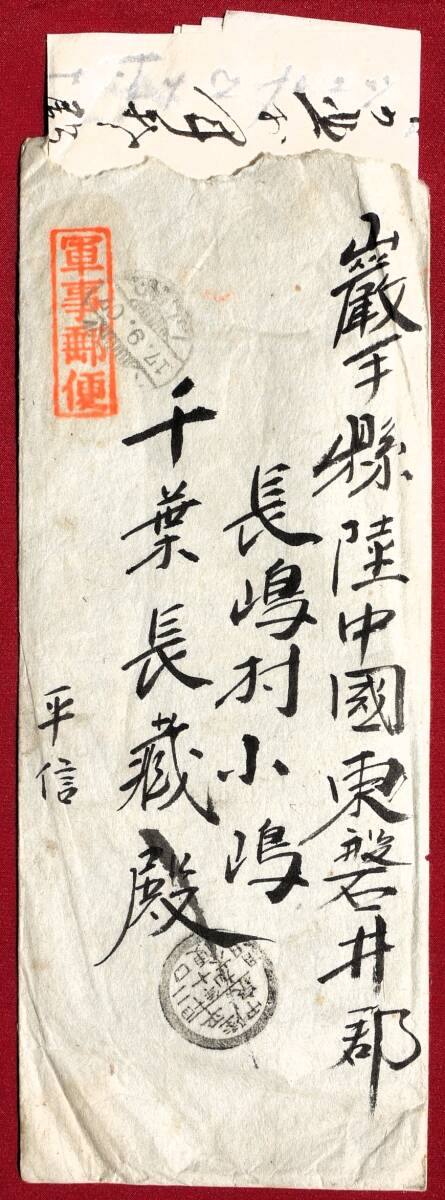 巖手縣陸中國東磐井郡
長嶋村小嶋
千葉長藏殿
軍事郵便
平信
17.9.